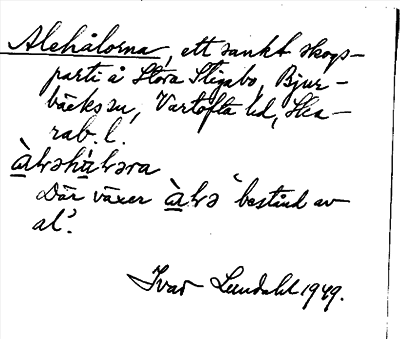 Alehålorna, ett sankt skogs-
parti å Stora Stigabo, Bjur-
bäcks sn, Vartofta hd, Ska-
rab. l.
Där växer "bestånd av
al".
Ivar Lundahl 1949.